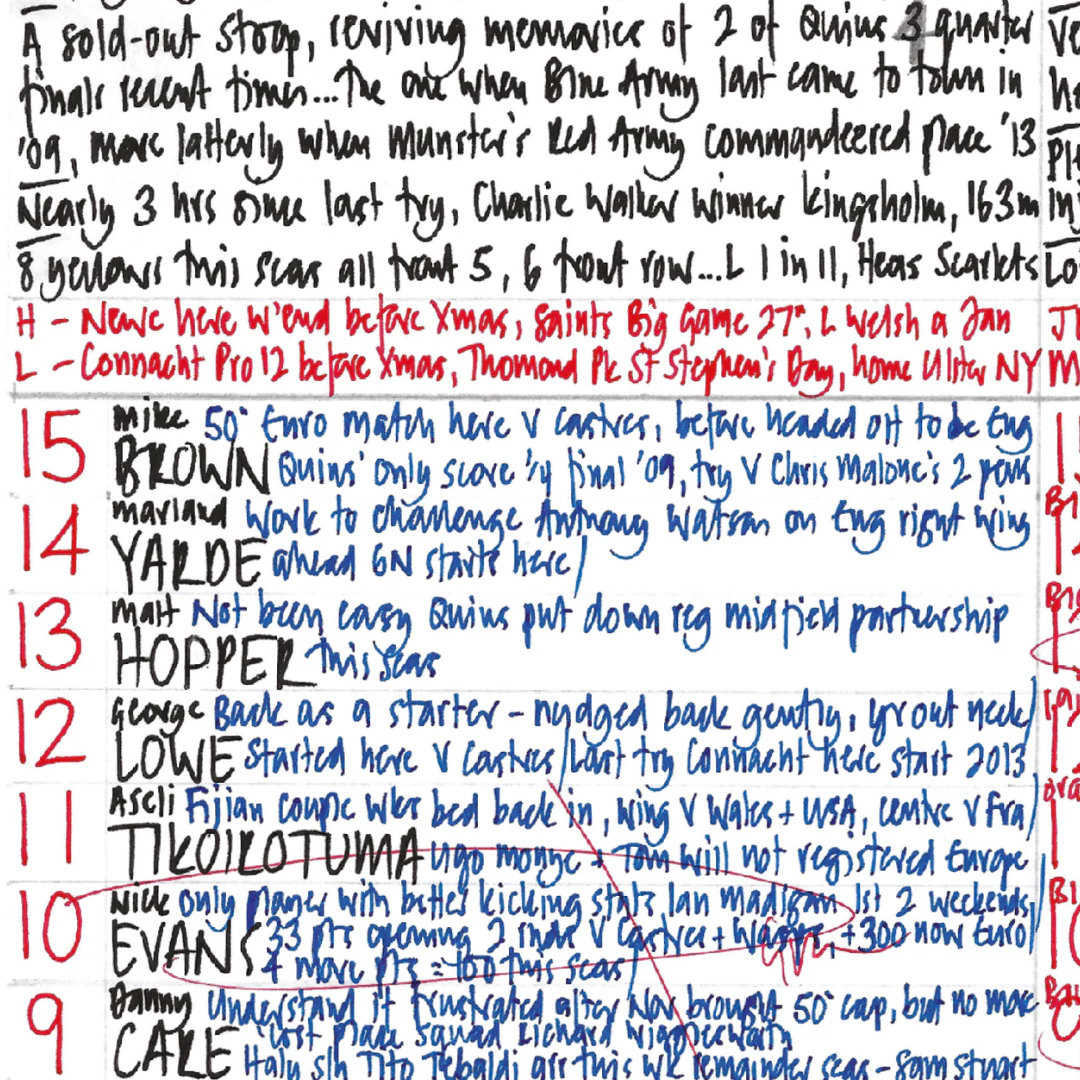 A sold-out Stoop, reviving memories of 2 of Quins 3 quarter
finals recent times...The one when Blue Army last came to town in
'09, more latterly when Munster's Red Army commandeered place '13
Nearly 3 hrs since last try, Charlie Walker winner Kingsholm, 163m
8 yellows this seas all front 5, 6 front row...L 1 in 11, Heas Scarlets
H - Newc here w'end before Xmas, Saints Big Game 27°, L Welsh a Jan
L - Connacht Pro 12 before Xmas, Thomond Pk St Stephen's Day, home Ulster NY
15 Mike 50° Euro match here v Castres, before headed off to be Eng
BROWN Quins' only score ¼ final '09, try v Chris Malone's 2 pens
14 Marland Work to challenge Anthony Watson on Eng right wing
YARDE ahead 6N starts here/
13 Matt Not been easy Quins put down reg midfield partnership
HOPPER this seas
12 George Back as a starter - nudged back gently, yr out neck/
LOWE Started here v Castres/Last try Connacht here start 2013
11 Aseli Fijian couple wks bed back in, wing v Wales + USA, centre v Fra/
TIKOIROTUMA Ugo Monye + Tom Will not registered Europe
10 Nick only player with better kicking stats Ian Madigan 1st 2 weekends/
EVANS 33 pts opening 2 inds v Castres + Wasps, +300 now Euro/
4 more pts = 100 this seas/
9 Danny Understand it frustrated after Nov brought 50° cap, but no more
CARE 'lost place squad Richard Wigglesworth
Italy s/h Tito Tebaldi arr this wk remainder seas - Sam Stuart